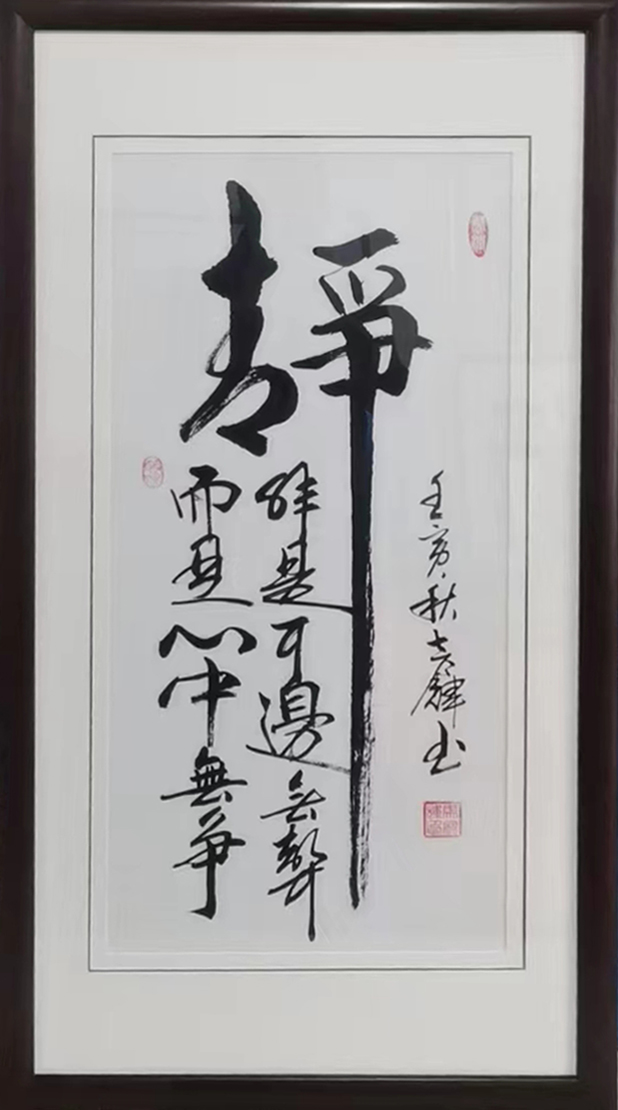 靜
非是耳邊无聲
而是心中無爭
壬寅秋
书